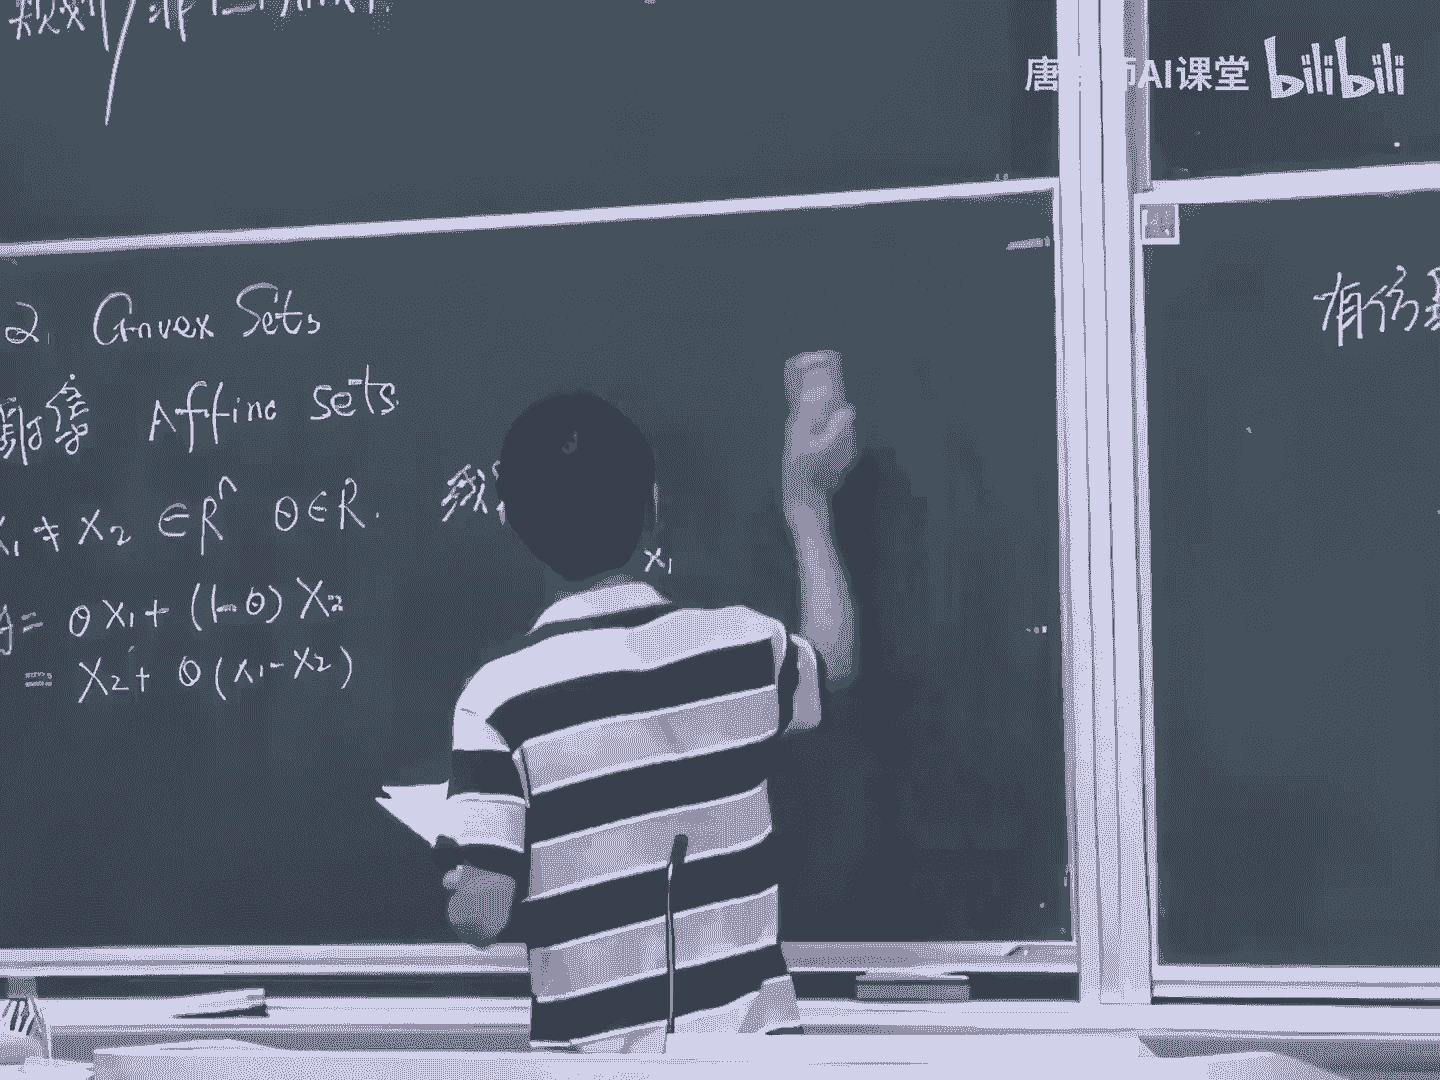 规划/非
唐 师AI课堂 bilibili
2. Convex Sets
射集 Affine sets
x₁ ≠ x₂ ∈ Rⁿ θ ∈ R.
y = θ x₁ + (1-θ) x₂
= x₂ + θ (x₁ - x₂)
x₁
有仿